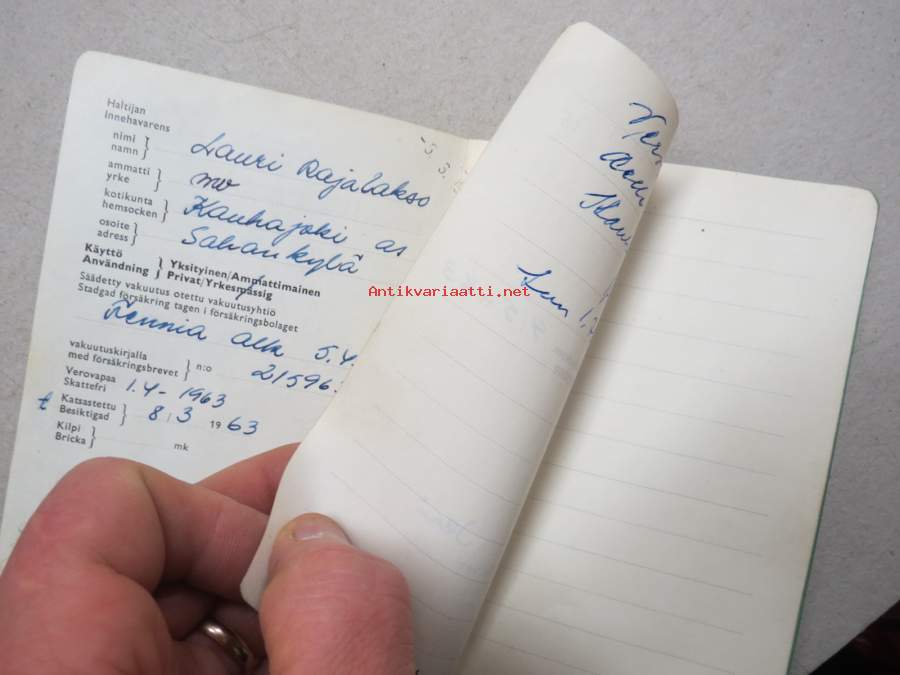 Haltijan
Innehavarens
nimi
namn
Lauri Rajalakso
ammatti
yrke
mv
kotikunta
hemsocken
Kauhajoki as
osoite
adress
Sahankylä
Käyttö
Användning
Yksityinen/Ammattimainen
Privat/Yrkesmässig
Säädetty vakuutus otettu vakuutusyhtiö
Stadgad försäkring tagen i försäkringsbolaget
Fennia alk 5.4.
vakuutuskirjalla
med försäkringsbrevet
n:o
21596
Verovapaa
Skattefri
1.4-1963
t
Katsastettu
Besiktigad
8/3 1963
Kilpi
Bricka
mk
Antikvariaatti.net